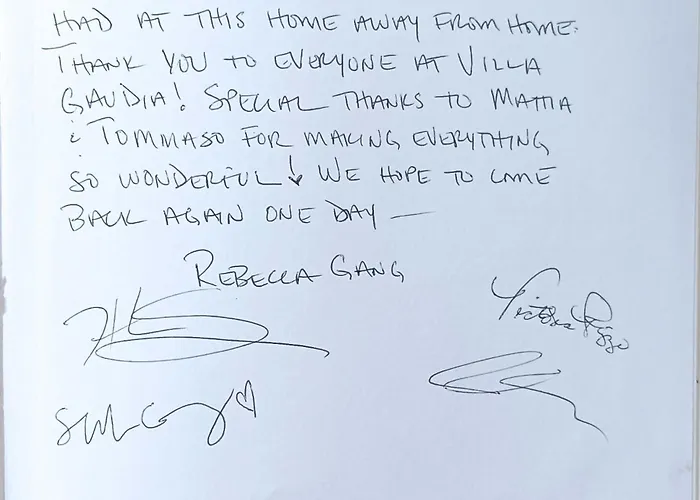 HAD AT THIS HOME AWAY FROM HOME.
THANK YOU TO EVERYONE AT VILLA
GAUDIA! SPECIAL THANKS TO MATTIA
& TOMMASO FOR MAKING EVERYTHING
SO WONDERFUL! WE HOPE TO COME
BACK AGAIN ONE DAY —
REBECCA GANG